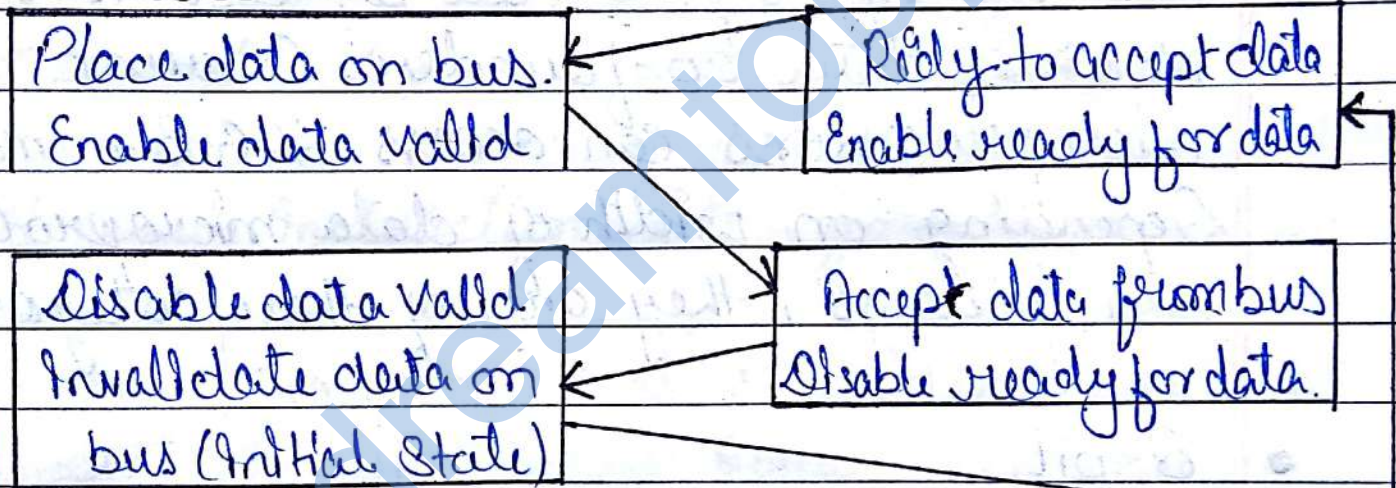 Place data on bus.
Enable data valid
Ready to accept data
Enable ready for data
Disable data valid
Invalidate data on
bus (Initial State)
Accept data from bus
Disable ready for data.